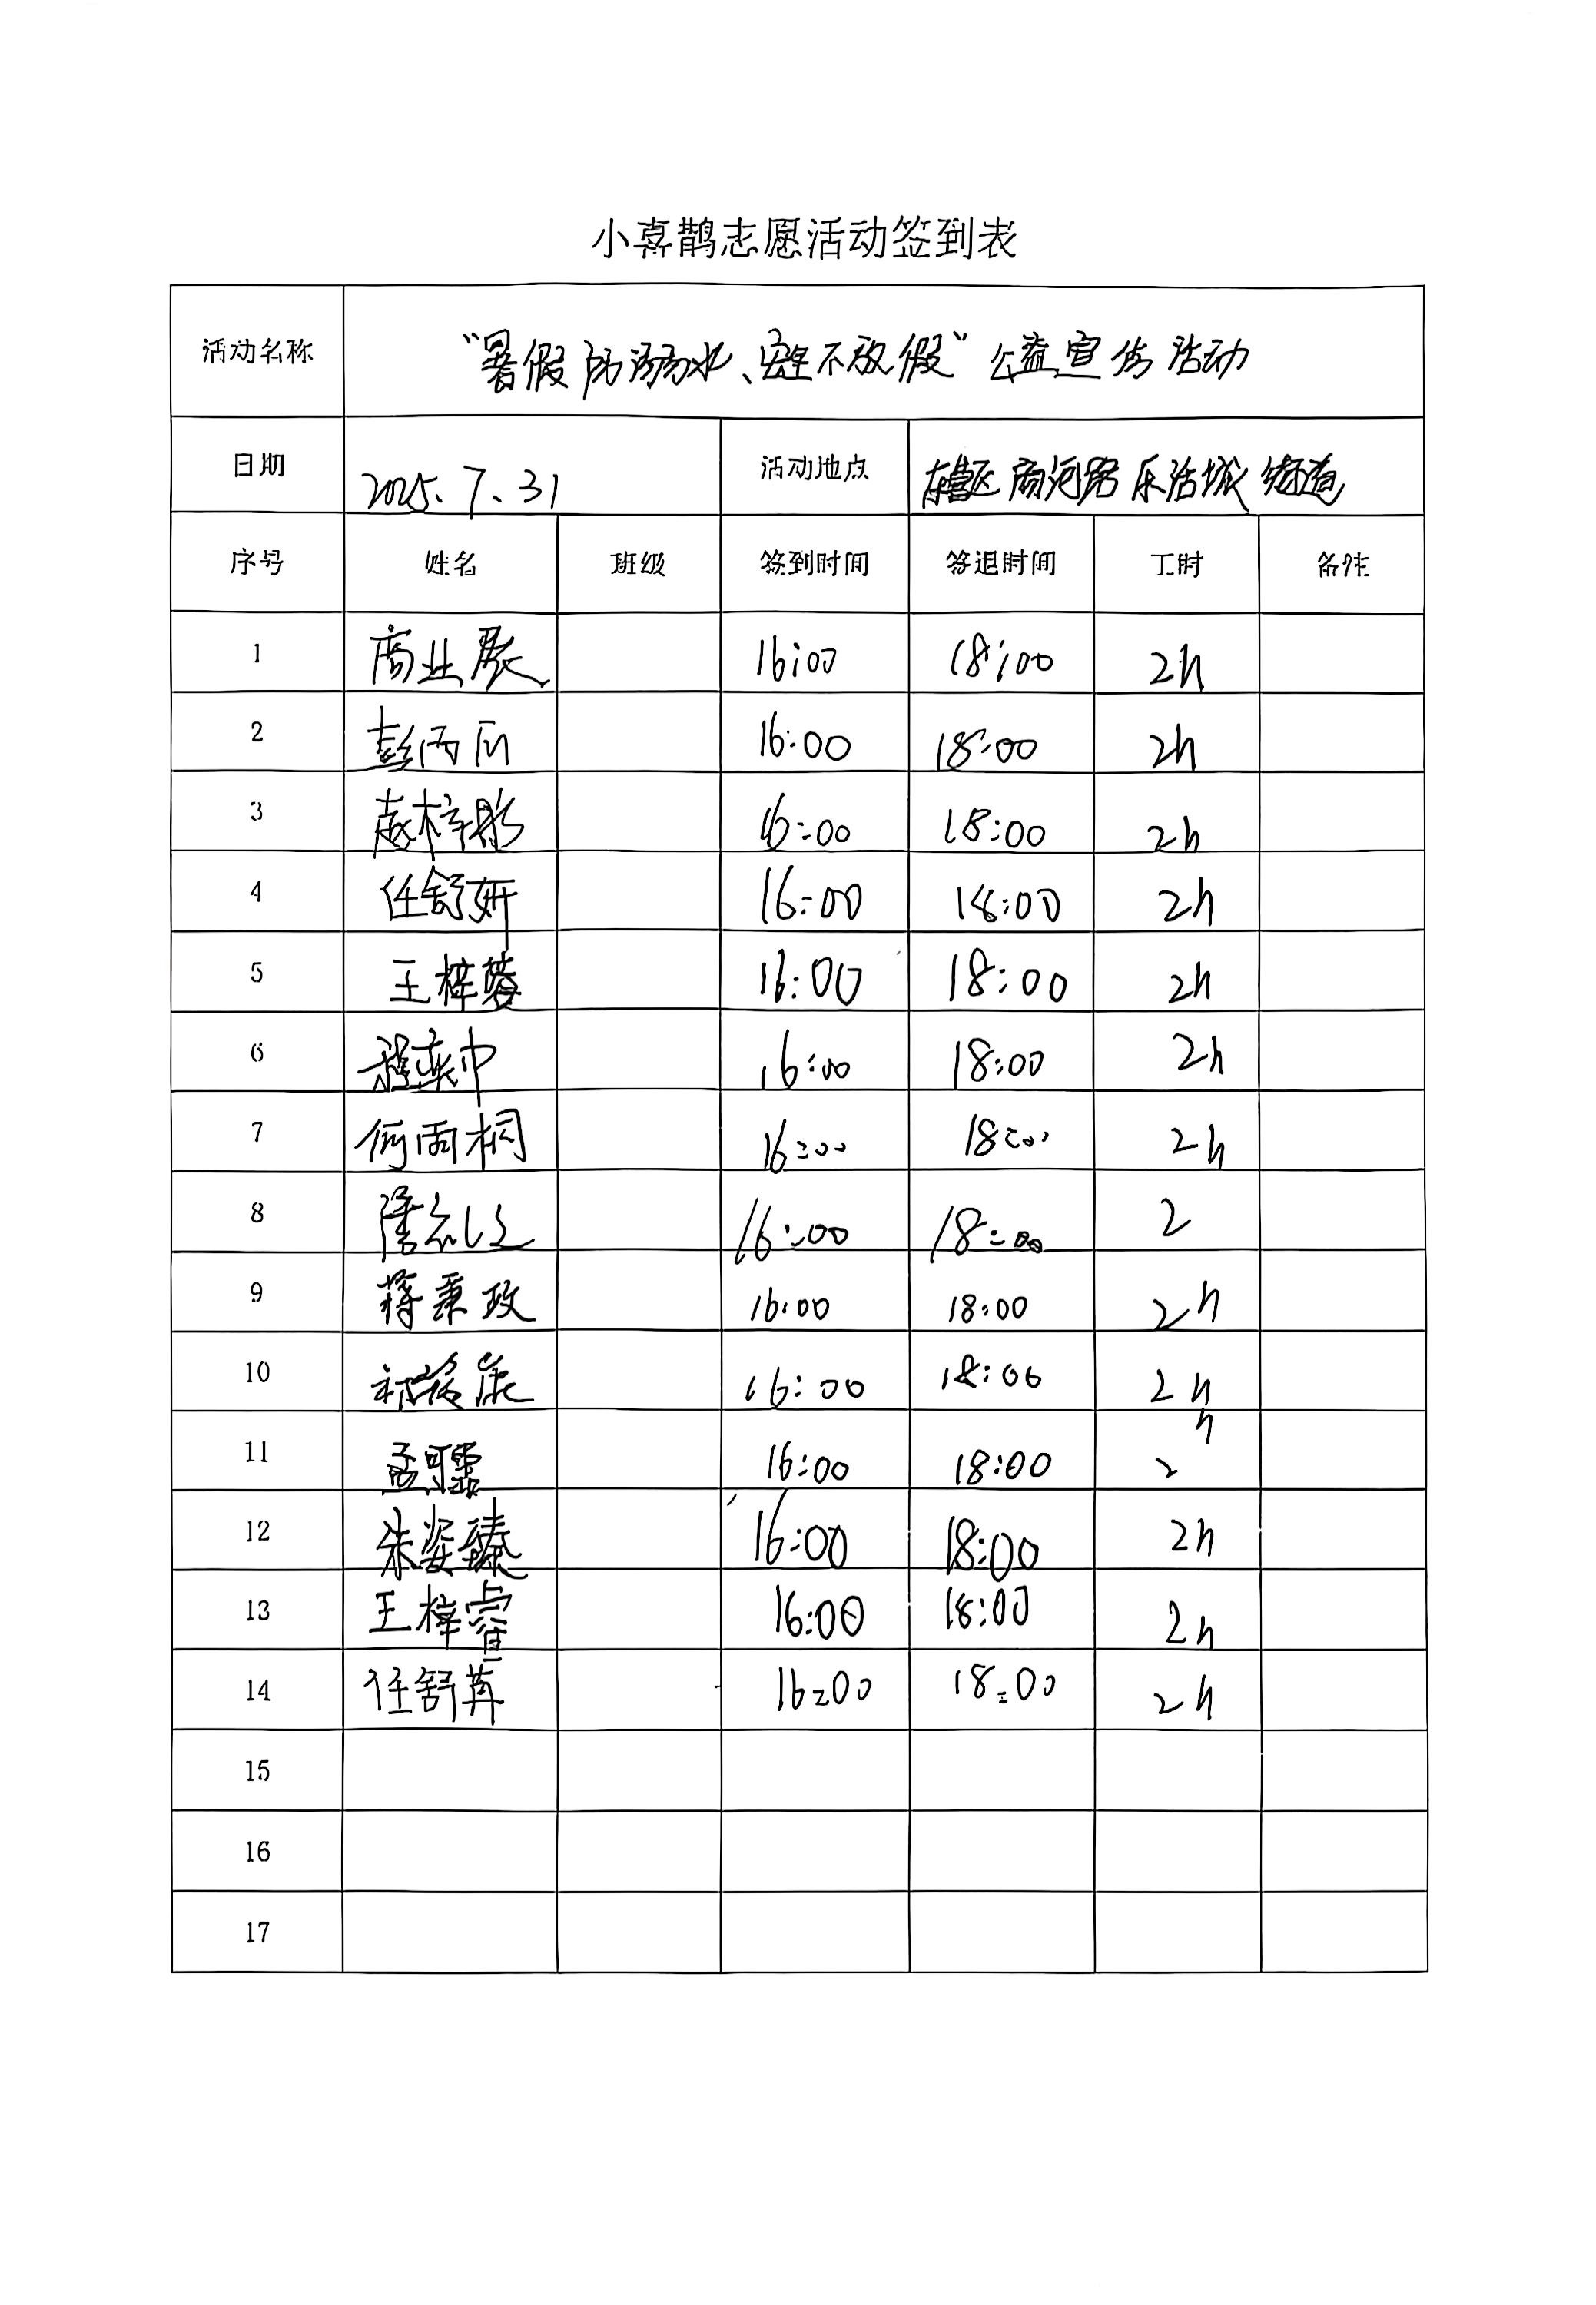 小喜鹊志愿活动签到表
活动名称 “暑假防溺水、安全不放假”公益宣传活动
日期 2025.7.31 活动地点 商河路乐活城街道
序号 姓名 班级 签到时间 签退时间 工时 备注
1 商业 16:00 18:00 2h
2 彭雨 16:00 18:00 2h
3 赵梓彤 16:00 18:00 2h
4 任舒妍 16:00 18:00 2h
5 王梓蓉 16:00 18:00 2h
6 程奕中 16:00 18:00 2h
7 何雨桐 16:00 18:00 2h
8 16:00 18:00 2
9 蒋秉政 16:00 18:00 2h
10 16:00 18:00 2h
11 孟可 16:00 18:00 2h
12 朱姿臻 16:00 18:00 2h
13 王梓睿 16:00 18:00 2h
14 任舒苒 16:00 18:00 2h
15
16
17